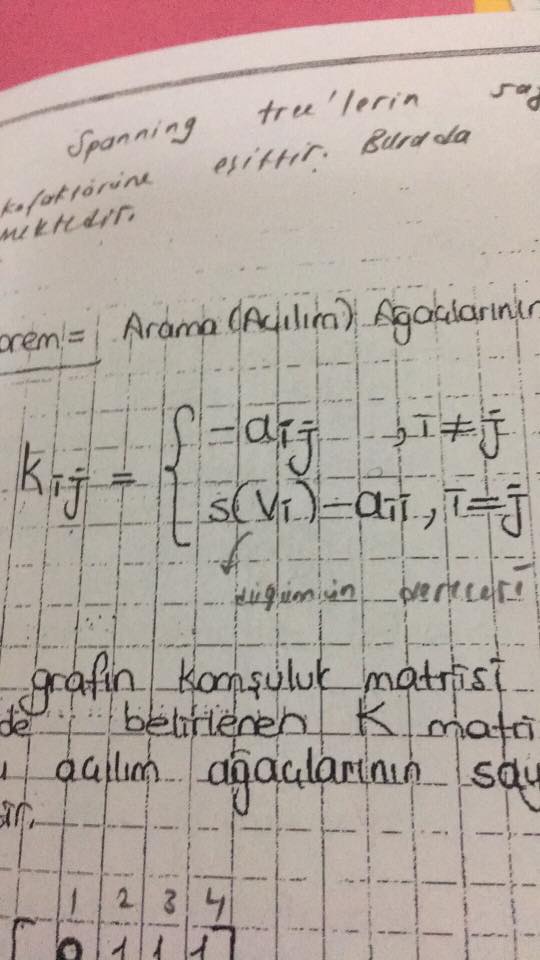 Spanning tree'lerin say
kofaktörüne eşittir. Burada
mektedir.
orem= Arama (Açılım) Ağaçlarının
Kij = { -aij , i ≠ j
s(Vi) - aii , i = j
düğümün derecesi
grafın komşuluk matrisi
de belirlenen K matri
açılım ağaçlarının say
ır.
1 2 3 4
0 1 1 1